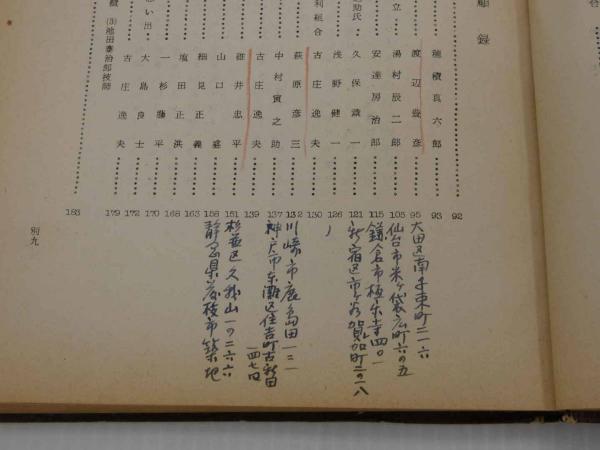 録
92
穂積真六郎 93
渡辺豊彦 95 大田区南千束町二一六
湯村辰二郎 105 仙台市米ケ袋広町六の五
安達房治郎 115 鎌倉市極楽寺四〇一
久保薫一 121 新宿区市ヶ谷加賀町二の一八
浅野健一 126
古庄逸夫 130
萩原彦三 132 川崎市鹿島田一二一
中村寅之助 137 神戸市東灘区住吉町古新田一四七四
古庄逸夫 139
碓井忠平 151 杉並区久我山一の二六六
山口盛 158 静岡県藤枝市築地
細見正義 163
塩田正洪 168
一杉藤平 170
大島良士 172
古庄逸夫 179
(3)池田泰治郎技師 183
別九
立
助氏
利組合
い出